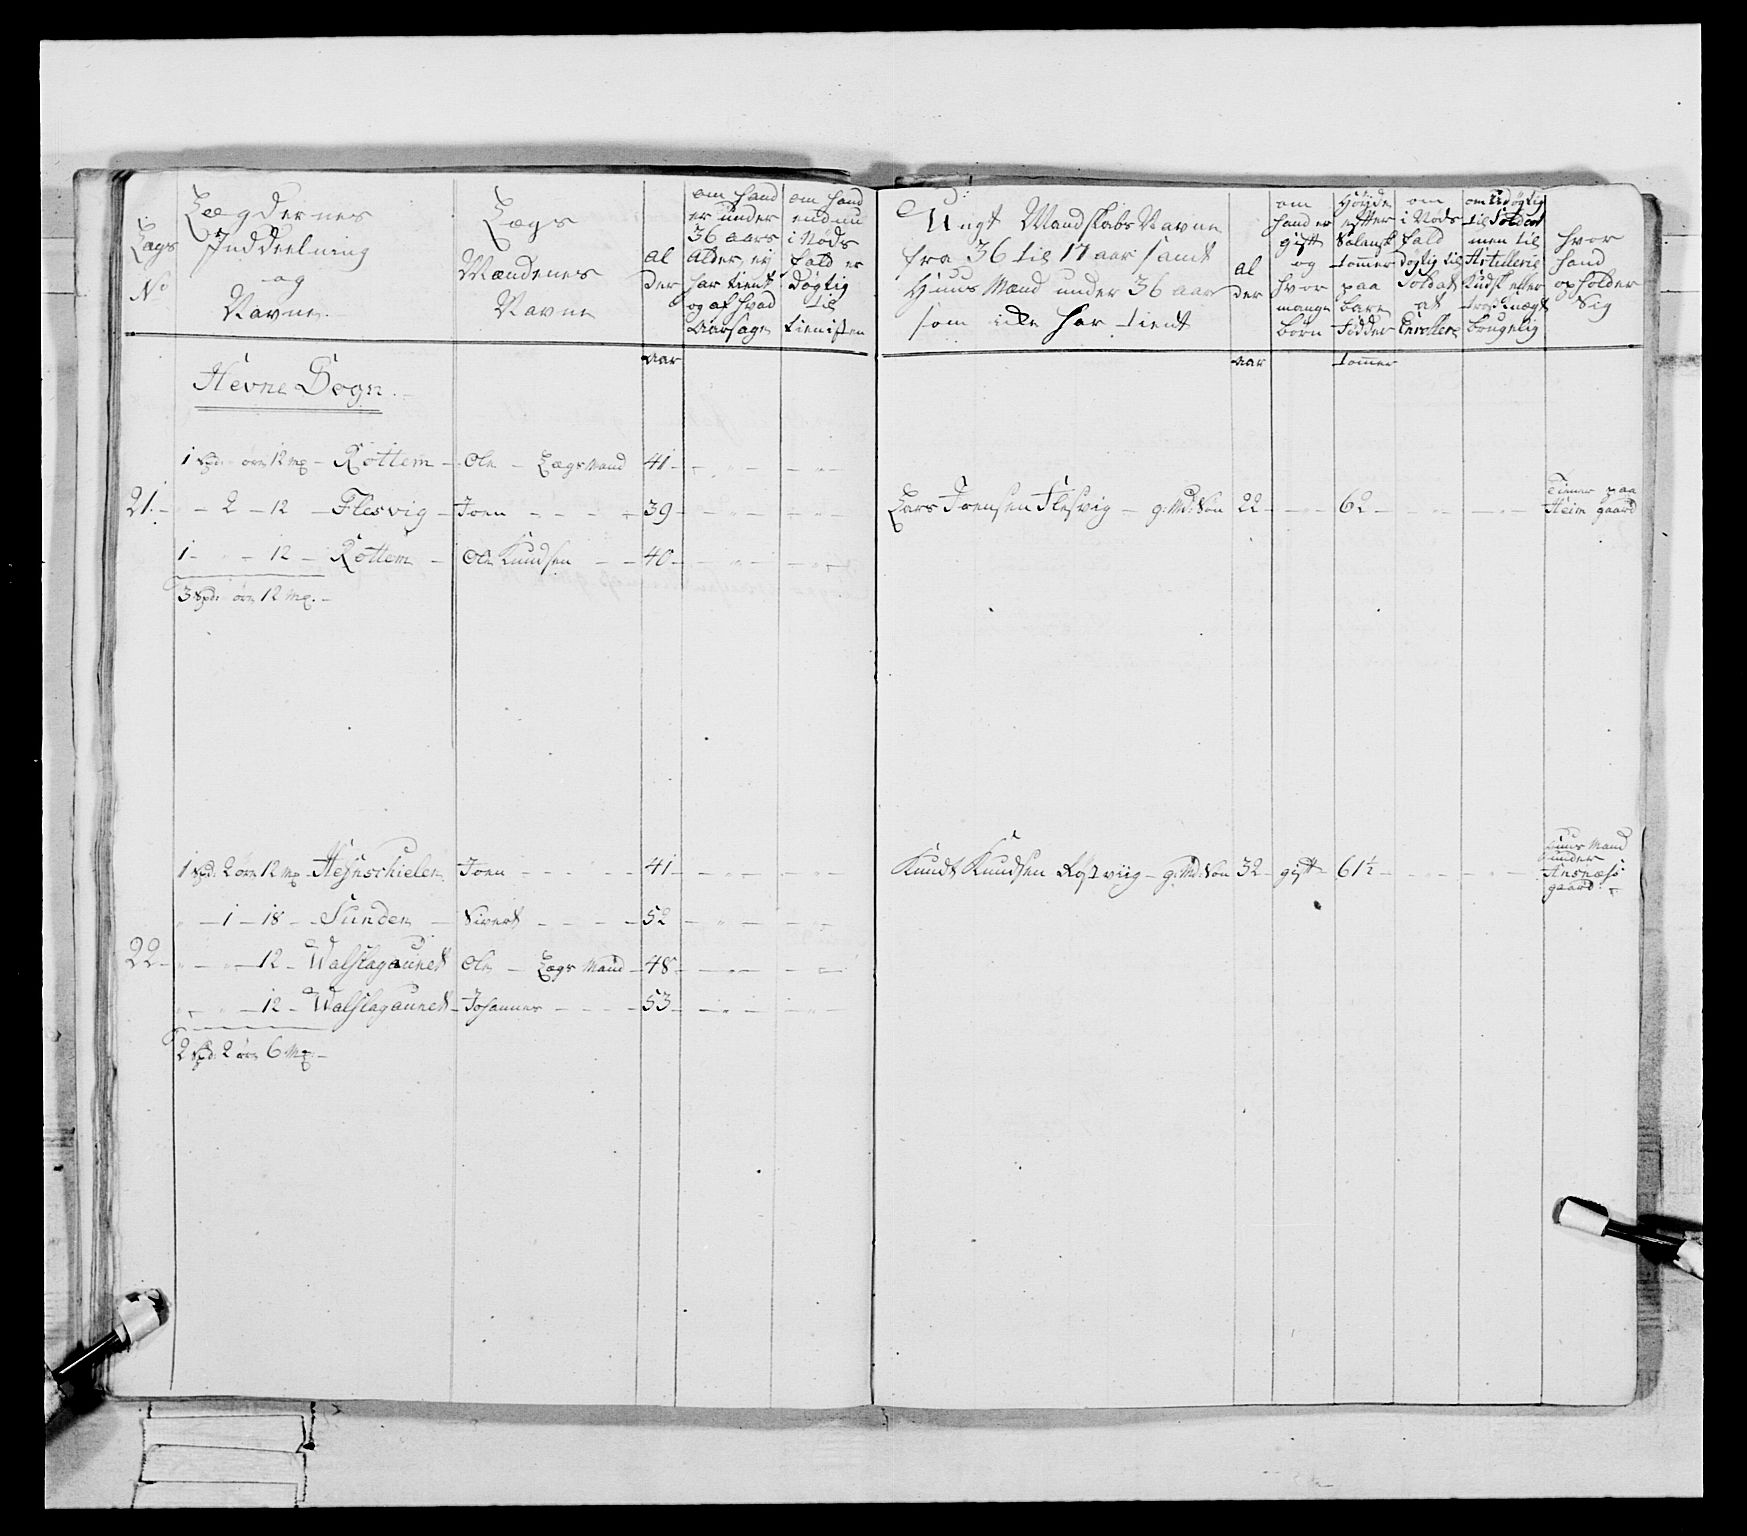 Lægs
No
Lægdernes
Inddeelning
og
Navne.
Lægs
Mændenes
Navne
al
der
om hand
er under
36 aars
Alder, ei
har tient
og af hvad
Aarsage
om hand
endnu
i Nøds
fald er
døgtig
til
tienisten
Ungt MandskabsNavne
fra 36 til 17 aar samt
Huus Mænd under 36 aar
som icke har tient
al
der
om
hand er
gift
og
hvor
mange
børn
Høyde
efter
Salansk
tommer
paa
bare
Fødder
om
i Nøds
fald
døgtig til
Soldat
at
Enrollere
om Udøgtig
til Soldat
men til
Artillerie
Kudsk eller
trosknægt
brugelig
hvor
hand
opholder
Sig
aar
aar
tommer
Hevne Sogn.
1 Spd: - øre 12 Mp - Rottem - Ole - LægsMand 41 -
21. - - 2 - 12 - Flesvig - Joen - - - - 39 - Lars Joensen Flesvig - g: Md: Søn 22 - 62 - Tiener paa
Heim gaard
1 - - 12 - Rottem - Ole Knudsen - - 40 -
3 Spd: øre 12 Mp. -
1 Spd. 2 øre 12 Mp - Hejnschielen Joen - - - - 41 - Knudt Knudsen Røstviig - g: Md: Søn 32 - gift - 61½ - Huus Mand
under
Ansnæss
gaard.
- 1 - 18 - Sunden - Sivert - - - - 52 -
22 - - - 12 - Walslagaunet Ole - Lægs Mand - 48 -
- - 12 - Walslagaunet - Johannes - - - - 53 -
2 Spd: 2 øre 6 Mp: -